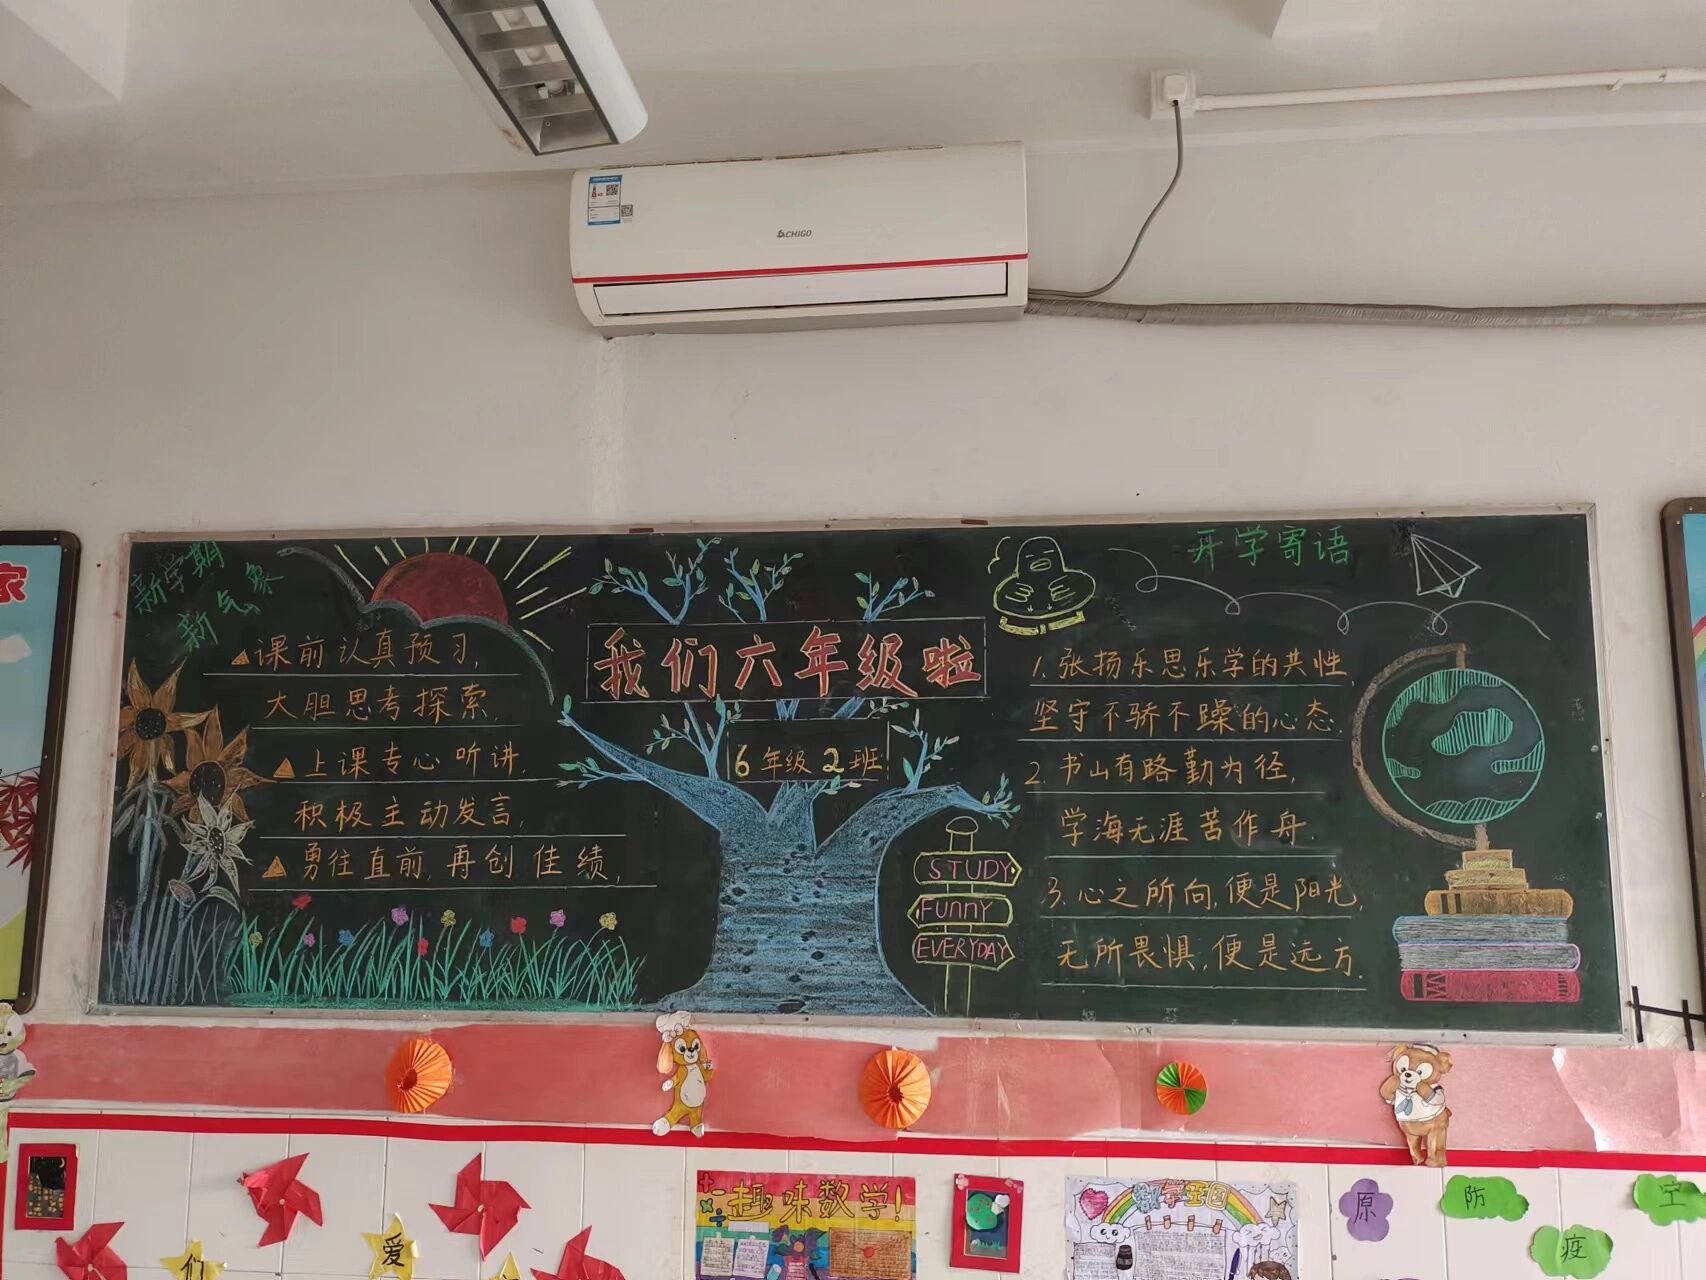 CHIGO
家
新学期
新气象
课前认真预习,
大胆思考探索,
上课专心听讲,
积极主动发言,
勇往直前,再创佳绩,
我们六年级啦
6年级2班
STUDY
FUnnY
EVERYDAY
开学寄语
1.张扬乐思乐学的共性,
坚守不骄不躁的心态.
2.书山有路勤为径,
学海无涯苦作舟.
3.心之所向,便是阳光,
无所畏惧,便是远方.
们
爱
趣味数学!
数学王国
原
防
疫
空